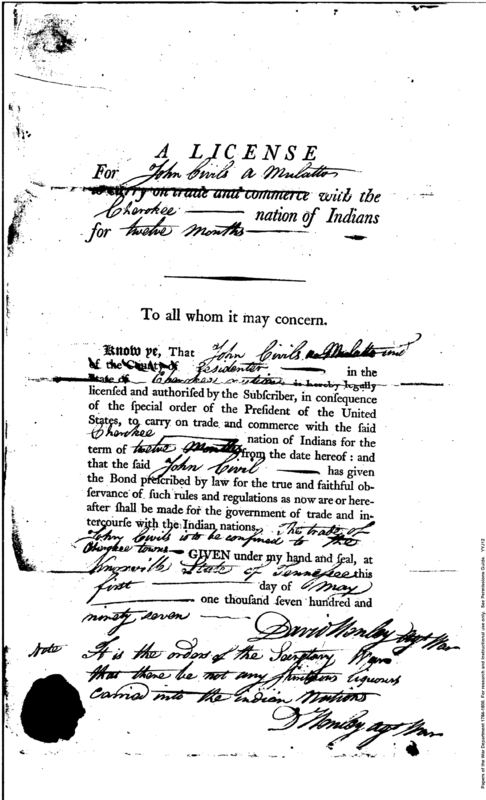 A LICENSE
For John Civils a Mulatto
to carry on trade and commerce with the
Cherokee nation of Indians
for twelve Months
To all whom it may concern.
Know ye, That John Civils a Mulatto
of the County of Residenter in the
State of Cherokee nation is hereby legally
licensed and authorised by the Subscriber, in consequence
of the special order of the President of the United
States, to carry on trade and commerce with the said
Cherokee nation of Indians for the
term of twelve Months from the date hereof: and
that the said John Civil has given
the Bond prescribed by law for the true and faithful ob-
servance of such rules and regulations as now are or here-
after shall be made for the government of trade and in-
tercourse with the Indian nations. The trade of
John Civils is to be confined to the
Cherokee towns GIVEN under my hand and seal, at
Knoxville State of Tennessee this
first day of May
one thousand seven hundred and
ninety seven
David Henley agt War
Note It is the orders of the Secretary War
that there be not any spirituous liquours
carried into the indian Nations
D Henley agt War
Papers of the War Department 1784-1800. For research and instructional use only. See Permissions Guide. YYJ12